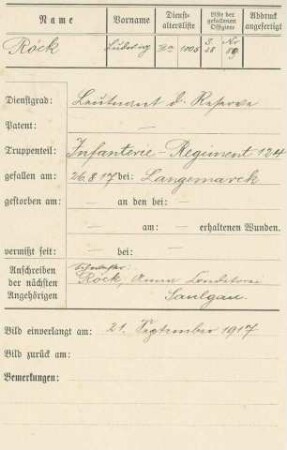 Name Vorname Dienst-altersliste Liste der gefallenen Offiziere Abdruck angefertigt
Röck Ludwig
Dienstgrad: Leutnant d. Reserve
Patent: —
Truppenteil: Infanterie-Regiment 124
gefallen am: 26.8.17 bei: Langemarck
gestorben am: — an den bei: —
— am: — erhaltenen Wunden.
vermißt seit: — bei: —
Anschreiben
der nächsten
Angehörigen
Schwester
Röck, Anna
Saulgau.
Bild einverlangt am: 21. September 1917
Bild zurück am:
Bemerkungen: